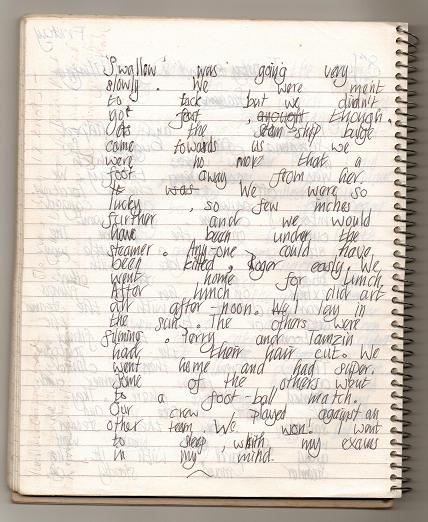 'Swallow' was going very
slowly. We were ment
to tack but we didn't
not foot, though.
the steam-ship huge
came towards us. we
were no more that a
foot away from her.
It was We were so
lucky, so few inches
further and we would
have been under the
steamer. Anyone could have
been killed, Roger easly. We
went home for lunch.
After lunch I did art
art after-noon. We I lay in
the sun. The others were
filming. Terry and Tamzin
had their hair cut. We
went home and had super.
Some of the others went
to a foot-ball match.
Our crew played against an
other team. We won! I went
to sleep, whith my exams
in my mind.